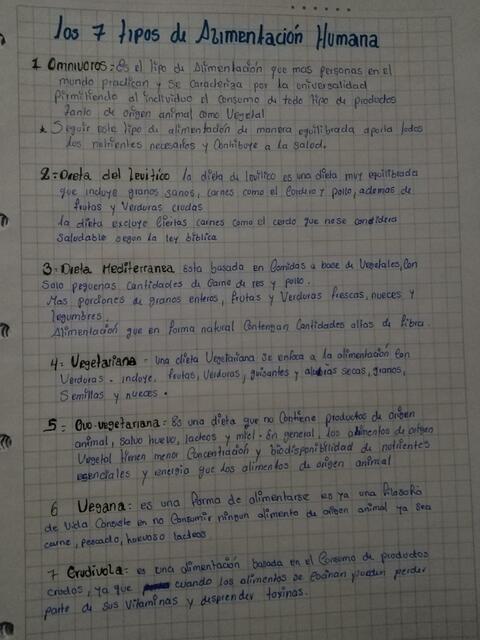 los 7 tipos de Alimentación Humana
1 Omnivoros: Es el tipo de Alimentación que mas personas en el
mundo practican y se Caracteriza por la universalidad
Permitiendo al individuo el consumo de todo tipo de productos
tanto de origen animal como Vegetal
* Seguir este tipo de alimentación de manera equilibrada aporta todos
los nutrientes necesarios y Contribuye a la salud.
2=Dieta del levitico la dieta de levitico es una dieta muy equilibrada
que incluye granos sanos, carnes como el Cordero y pollo, ademas de
frutas y Verduras crudas
la dieta excluye Ciertas carnes como el cerdo que no se considera
Saludable segun la ley biblica
3=Dieta Mediterranea Esta basada en Comidas a base de Vegetales, Con
Solo pequenas Cantidades de Carne de res y pollo.
Mas porciones de granos enteros, frutas y Verduras frescas, nueces y
legumbres.
Alimentación que en forma natural Contengan Cantidades altas de fibra.
4= Vegetariana - una dieta Vegetariana se enfoca a la alimentación Con
Verduras. incluye. frutas, Verduras, guisantes y alubias secas, granos,
Semillas y nueces.
5= Ovo-vegetariana: Es una dieta que no Contiene productos de origen
animal, salvo huevo, lacteos y miel. En general, los alimentos de origen
Vegetal tienen menor Concentración y biodisponibilidad de nutrientes
esenciales y energia que los alimentos de origen animal
6 Vegana: es una forma de alimentarse es ya una filosofia
de Vida Consiste en no Consumir ningun alimento de origen animal ya sea
carne, pescado, huevos o lacteos
7 Crudivola: es una alimentación basada en el Consumo de productos
crudos, ya que cuando los alimentos se Cocinan pueden perder
parte de sus Vitaminas y desprender toxinas.